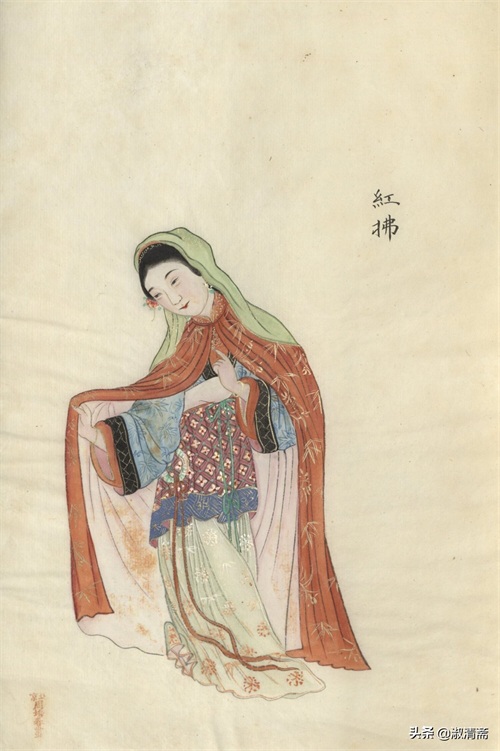 紅
拂
头条 @淑清斋